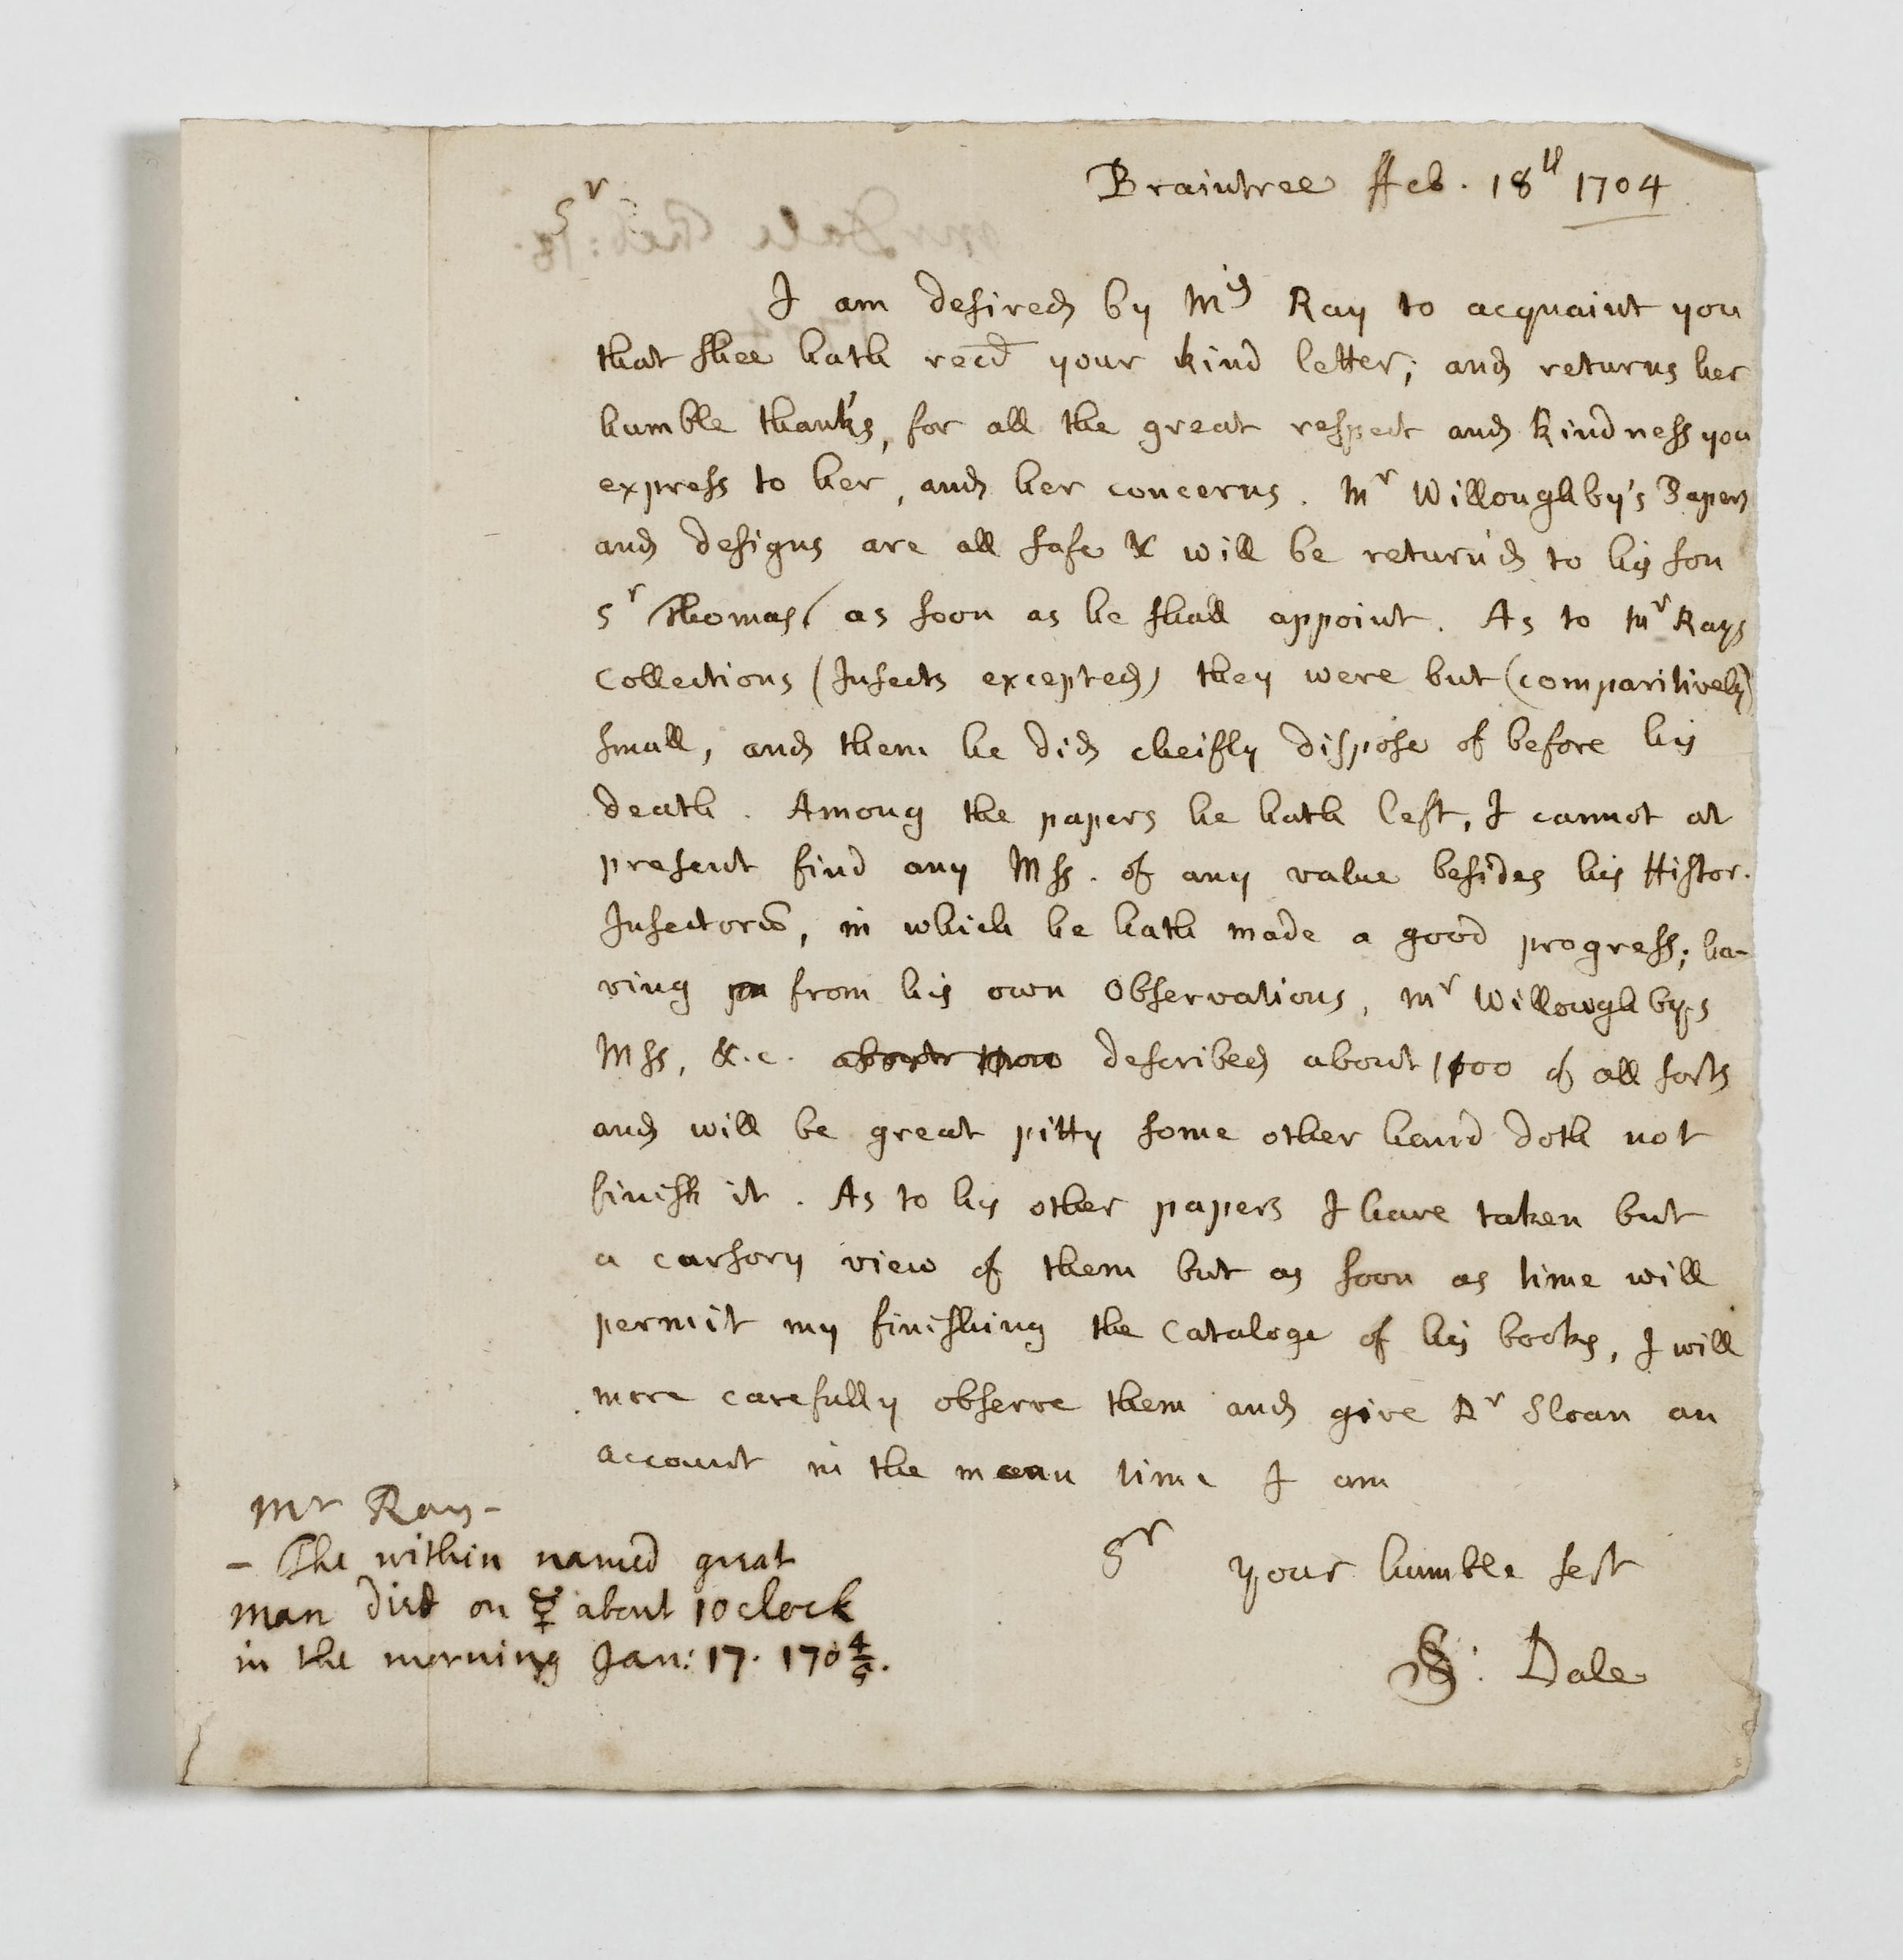 Braintree ffeb. 18th 1704
Sr
I am desired by Mrs Ray to acquaint you
that shee hath recd your kind letter; and returns her
humble thanks, for all the great respect and kindness you
express to her, and her concerns. Mr Willoughby's Papers
and designs are all safe & will be return'd to his son
Sr Thomas as soon as he shall appoint. As to Mr Rays
Collections (Insects excepted) they were but (comparitively)
small, and them he did cheifly dispose of before his
death. Among the papers he hath left, I cannot at
present find any Mss. of any value besides his Histor.
Insectorū, in which he hath made a good progress; ha-
ving from his own Observations, Mr Willowghbys
Mss, &.c. described about of all sorts
and will be great pitty some other hand doth not
finish it. As to his other papers I have taken but
a cursory view of them but as soon as time will
permit my finishing the Cataloge of his books, I will
more carefully observe them and give Dr Sloan an
account in the mean time I am
Sr your humble sert
S: Dale
Mr Ray-
- The within named great
man died on ☿ about 10 clock
in the morning Jan: 17. 170 4/5.